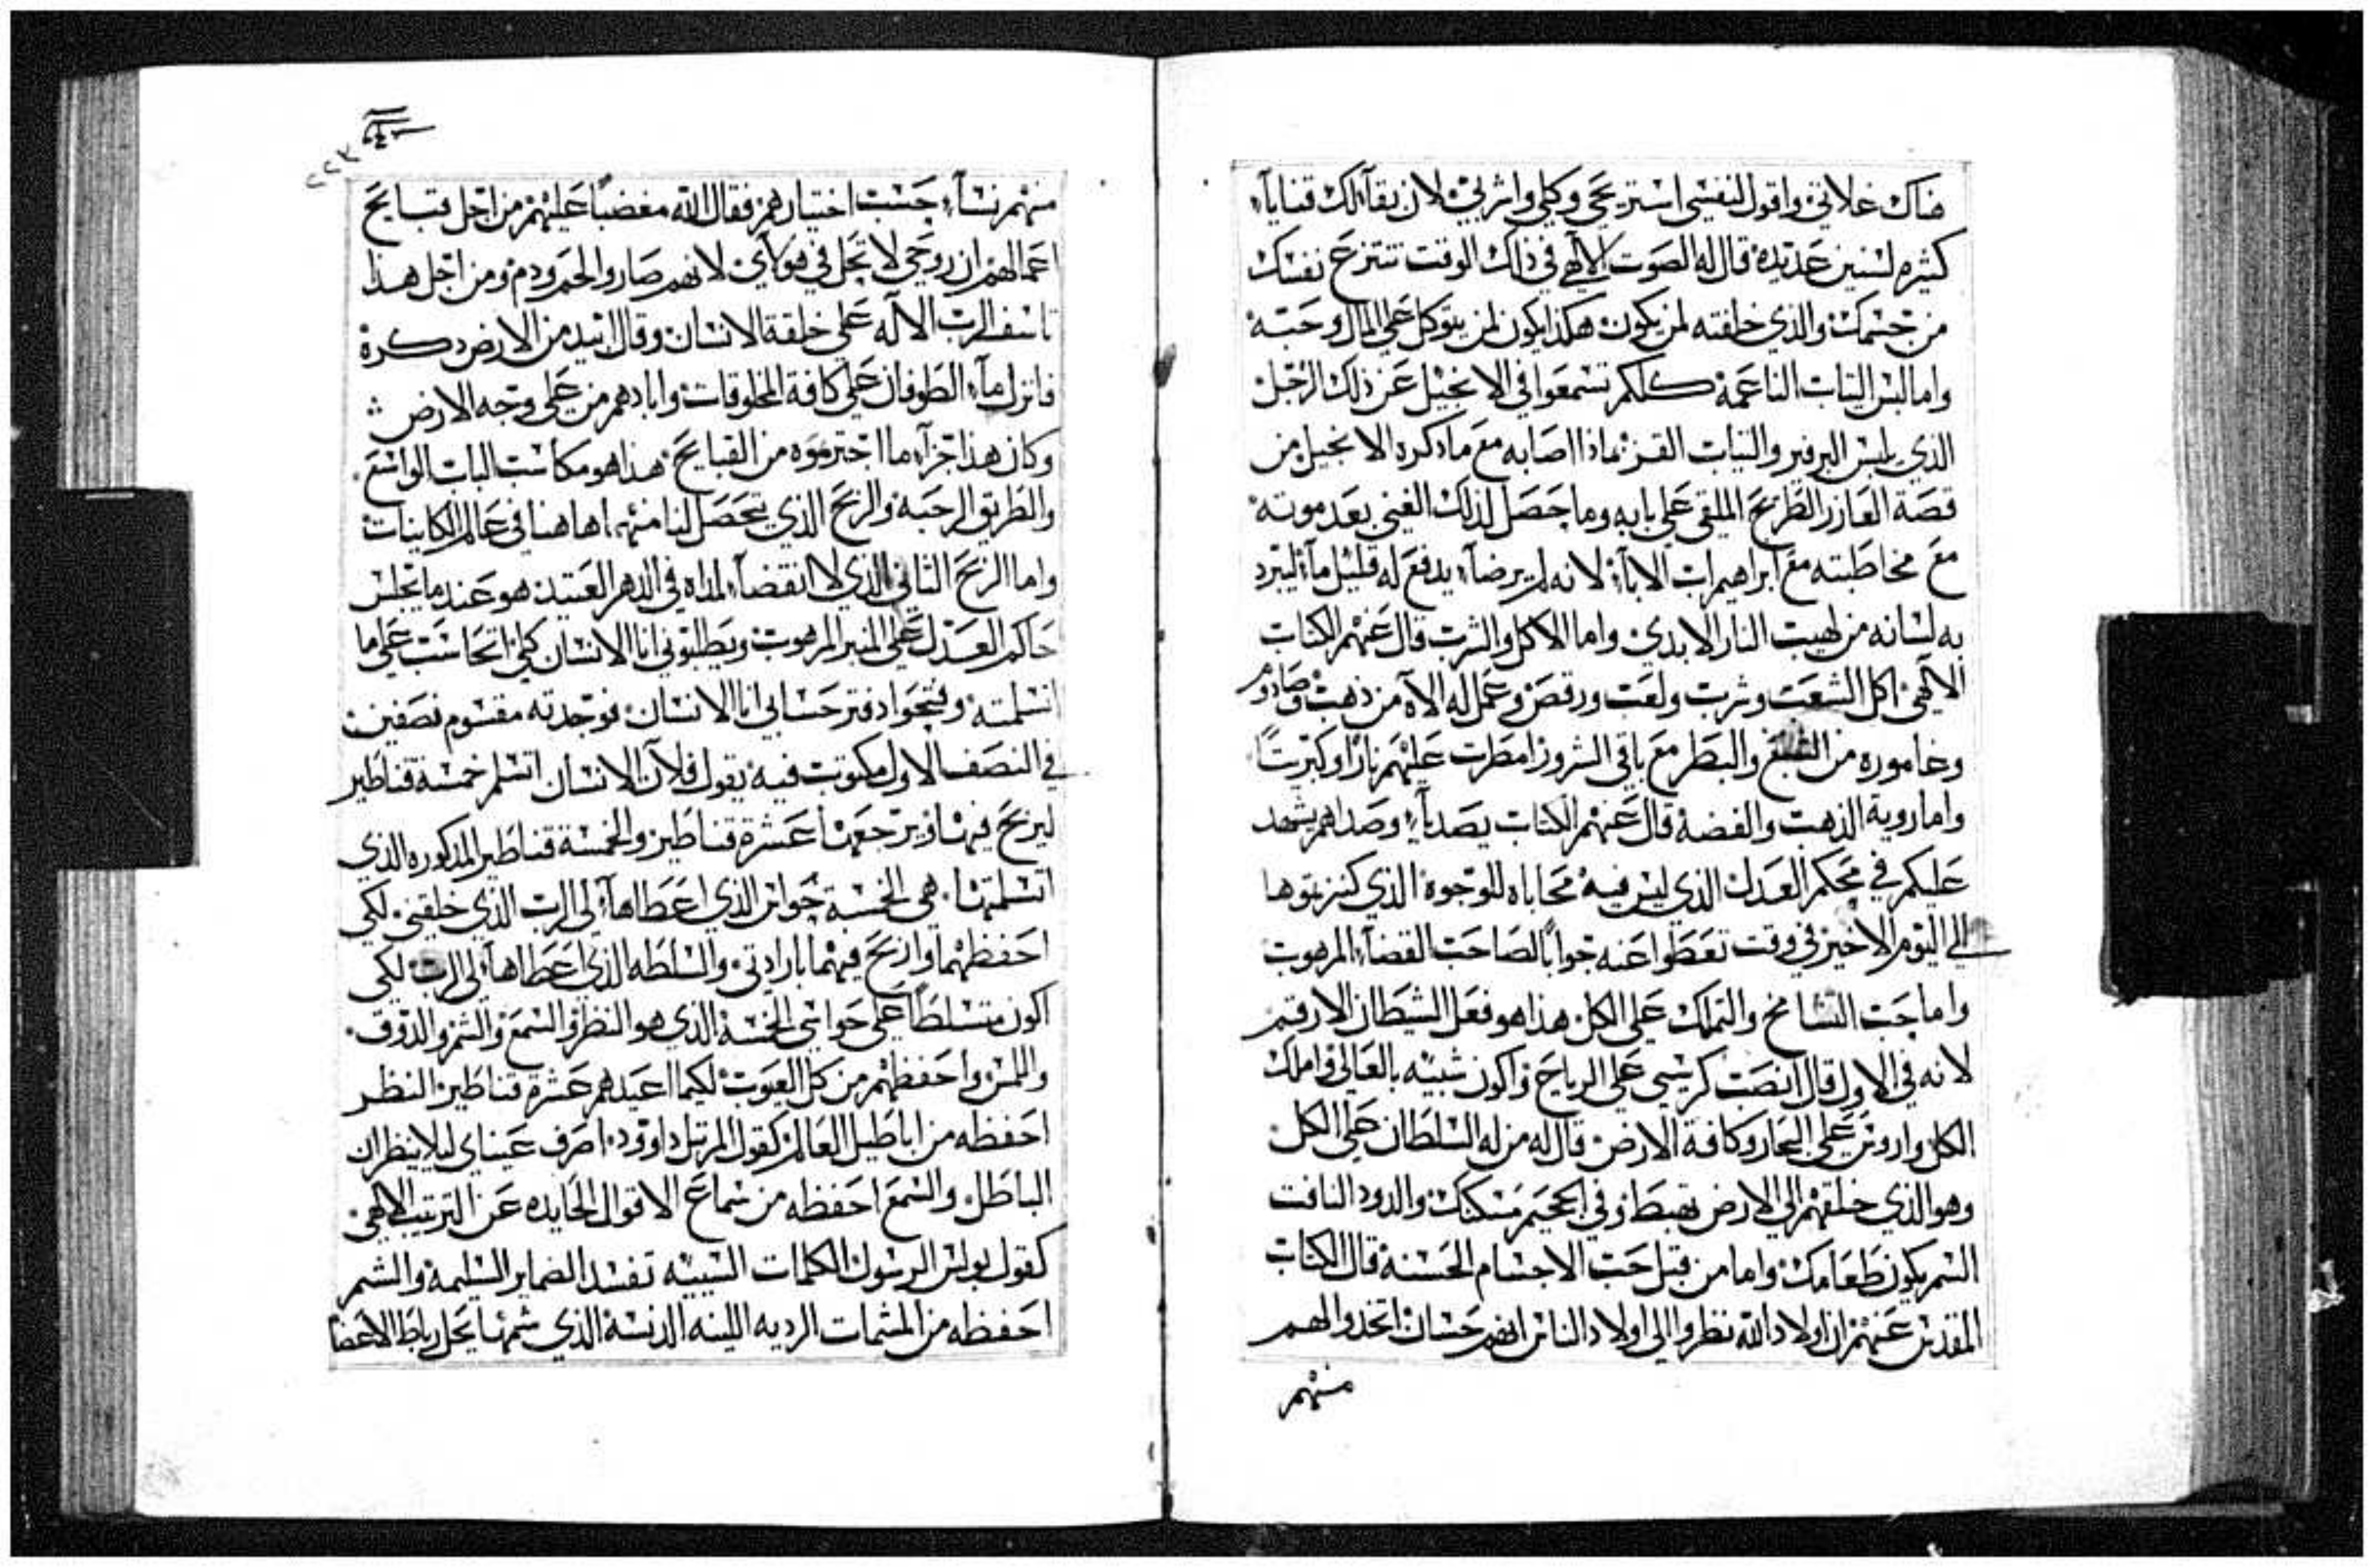 هناك غلاتي واقول لنفسي استريحي وكلي واشربي لان بقا لك قنايا
كثيره لسنين عديده قال له الصوت الالهي في ذلك الوقت تنتزع نفسك
من جسمك والذي خلفته لمن يكون هكذا يكون لمن يتوكل على المال وحبته
واما لبس الثياب الناعمة كلكم تسمعوا في الانجيل عن ذلك الرجل
الذي يلبس البرفير والثياب القز ماذا اصابه مع ما ذكره الانجيل من
قصة العازر الطريح الملقى على بابه وما حصل لذلك الغني بعد موته
مع مخاطبته مع ابراهيم اب الابآء لانه لم يرضآ يدفع له قليل مآء ليبرد
به لسانه من لهيب النار الابدي واما الاكل والشرب قال عنهم الكتاب
الالهي اكل الشعب وشرب ولعب ورقص وعمل له الاه من ذهب وصادوم
وغاموره من الشبع والبطر مع باقي الشرور امطرت عليهم نارًا وكبريتًا
واما روية الذهب والفضة قال عنهم الكتاب يصديآ وصداهم يشهد
عليكم في محكم العدل الذي ليس فيه محاباه للوجوه الذي كنزتوها
الى اليوم الاخير في وقت تعطوا عنه جوابًا لصاحب القضآء المرهوب
واما حب التشامخ والتملك على الكل هذا هو فعل الشيطان الارقم
لانه في الاول قال انصب كرسيي على الرياح واكون شبيه بالعالي واملك
الكل واروس على البحار وكافة الارض قال له من له السلطان على الكل
وهو الذي خلقهم الى الارض تهبط وفي الجحيم مسكنك والدود النافت
السم يكون طعامك واما من قبل حب الاجسام الحسنة قال الكتاب
المقدس عنهم ان اولاد الله نظروا الى اولاد الناس انهم حسان اتخذوا لهم
منهم
٢٤٣
٢٢٣
منهم نسآء حسب اختيارهم فقال الله مغضبًا عليهم من اجل قبايح
اعمالهم ان روحي لا تحل في هولآي لانهم صاروا لحم ودم ومن اجل هذا
تاسف الرب الاله على خلقة الانسان وقال ابيد من الارض ذكره
فانزل مآء الطوفان على كافة المخلوقات وابادهم من على وجه الارض
وكان هذا جزآء ما اجترموه من القبايح هذا هو مكاسب الباب الواسع
والطريق الرحبه والربح الذي يتحصل لنا منهما هاهنا في عالم الكاينات
واما الربح الثاني الذي لا انقضآء لمداه في الدهر العتيد هو عندما يجلس
حاكم العدل على المنبر المرهوب ويطلبوني انا الانسان كلي اتحاسب على ما
اتسلمته وفتحوا دفتر حسابي انا الانسان فوجدته مقسوم نصفين
في النصف الاول مكتوب فيه يقول فلان الانسان اتسلم خمسة قناطير
ليربح فيها ويرجعها عشرة قناطير والخمسة قناطير المذكوره الذي
اتسلمتها هي الخمسة حواس الذي اعطاهآ لي الرب الذي خلقني لكي
احفظهما واربح فيهما بارادتي والسلطه الذي اعطاهآ لي الرب لكي
اكون متسلطًا على حواسي الخمسة الذي هو النظر والسمع والشم والذوق
واللمس واحفظهم من كل العيوب لكيما اعيدهم عشرة قناطير النظر
احفظه من اباطيل العالم كقول المرتل داوود اصرف عيناي ليلا ينظران
الباطل والسمع احفظه من سماع الاقوال الحايده عن الترتيب الالهي
كقول بولس الرسول الكلمات السيية تفسد الضماير السليمة والشم
احفظه من المشمات الرديه اللينه الدنسة الذي شمها يحل رباط الاعضآ